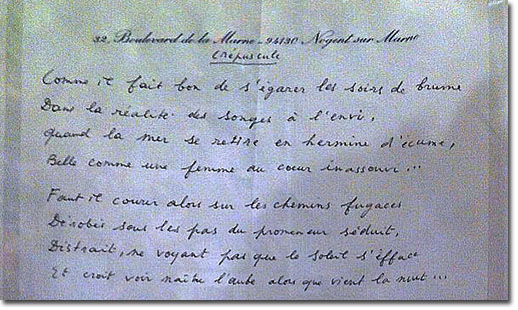 32, Boulevard de la Marne - 94130 Nogent sur Marne
Crépuscule
Comme il fait bon de s'égarer les soirs de brume
Dans la réalité des songes à l'envi,
Quand la mer se retire en hermine d'écume,
Belle comme une femme au coeur inassouvi...
Faut il courir alors sur les chemins fugaces
Dérobés sous les pas du promeneur séduit,
Distrait, ne voyant pas que le soleil s'efface
Et croit voir naître l'aube alors que vient la nuit...